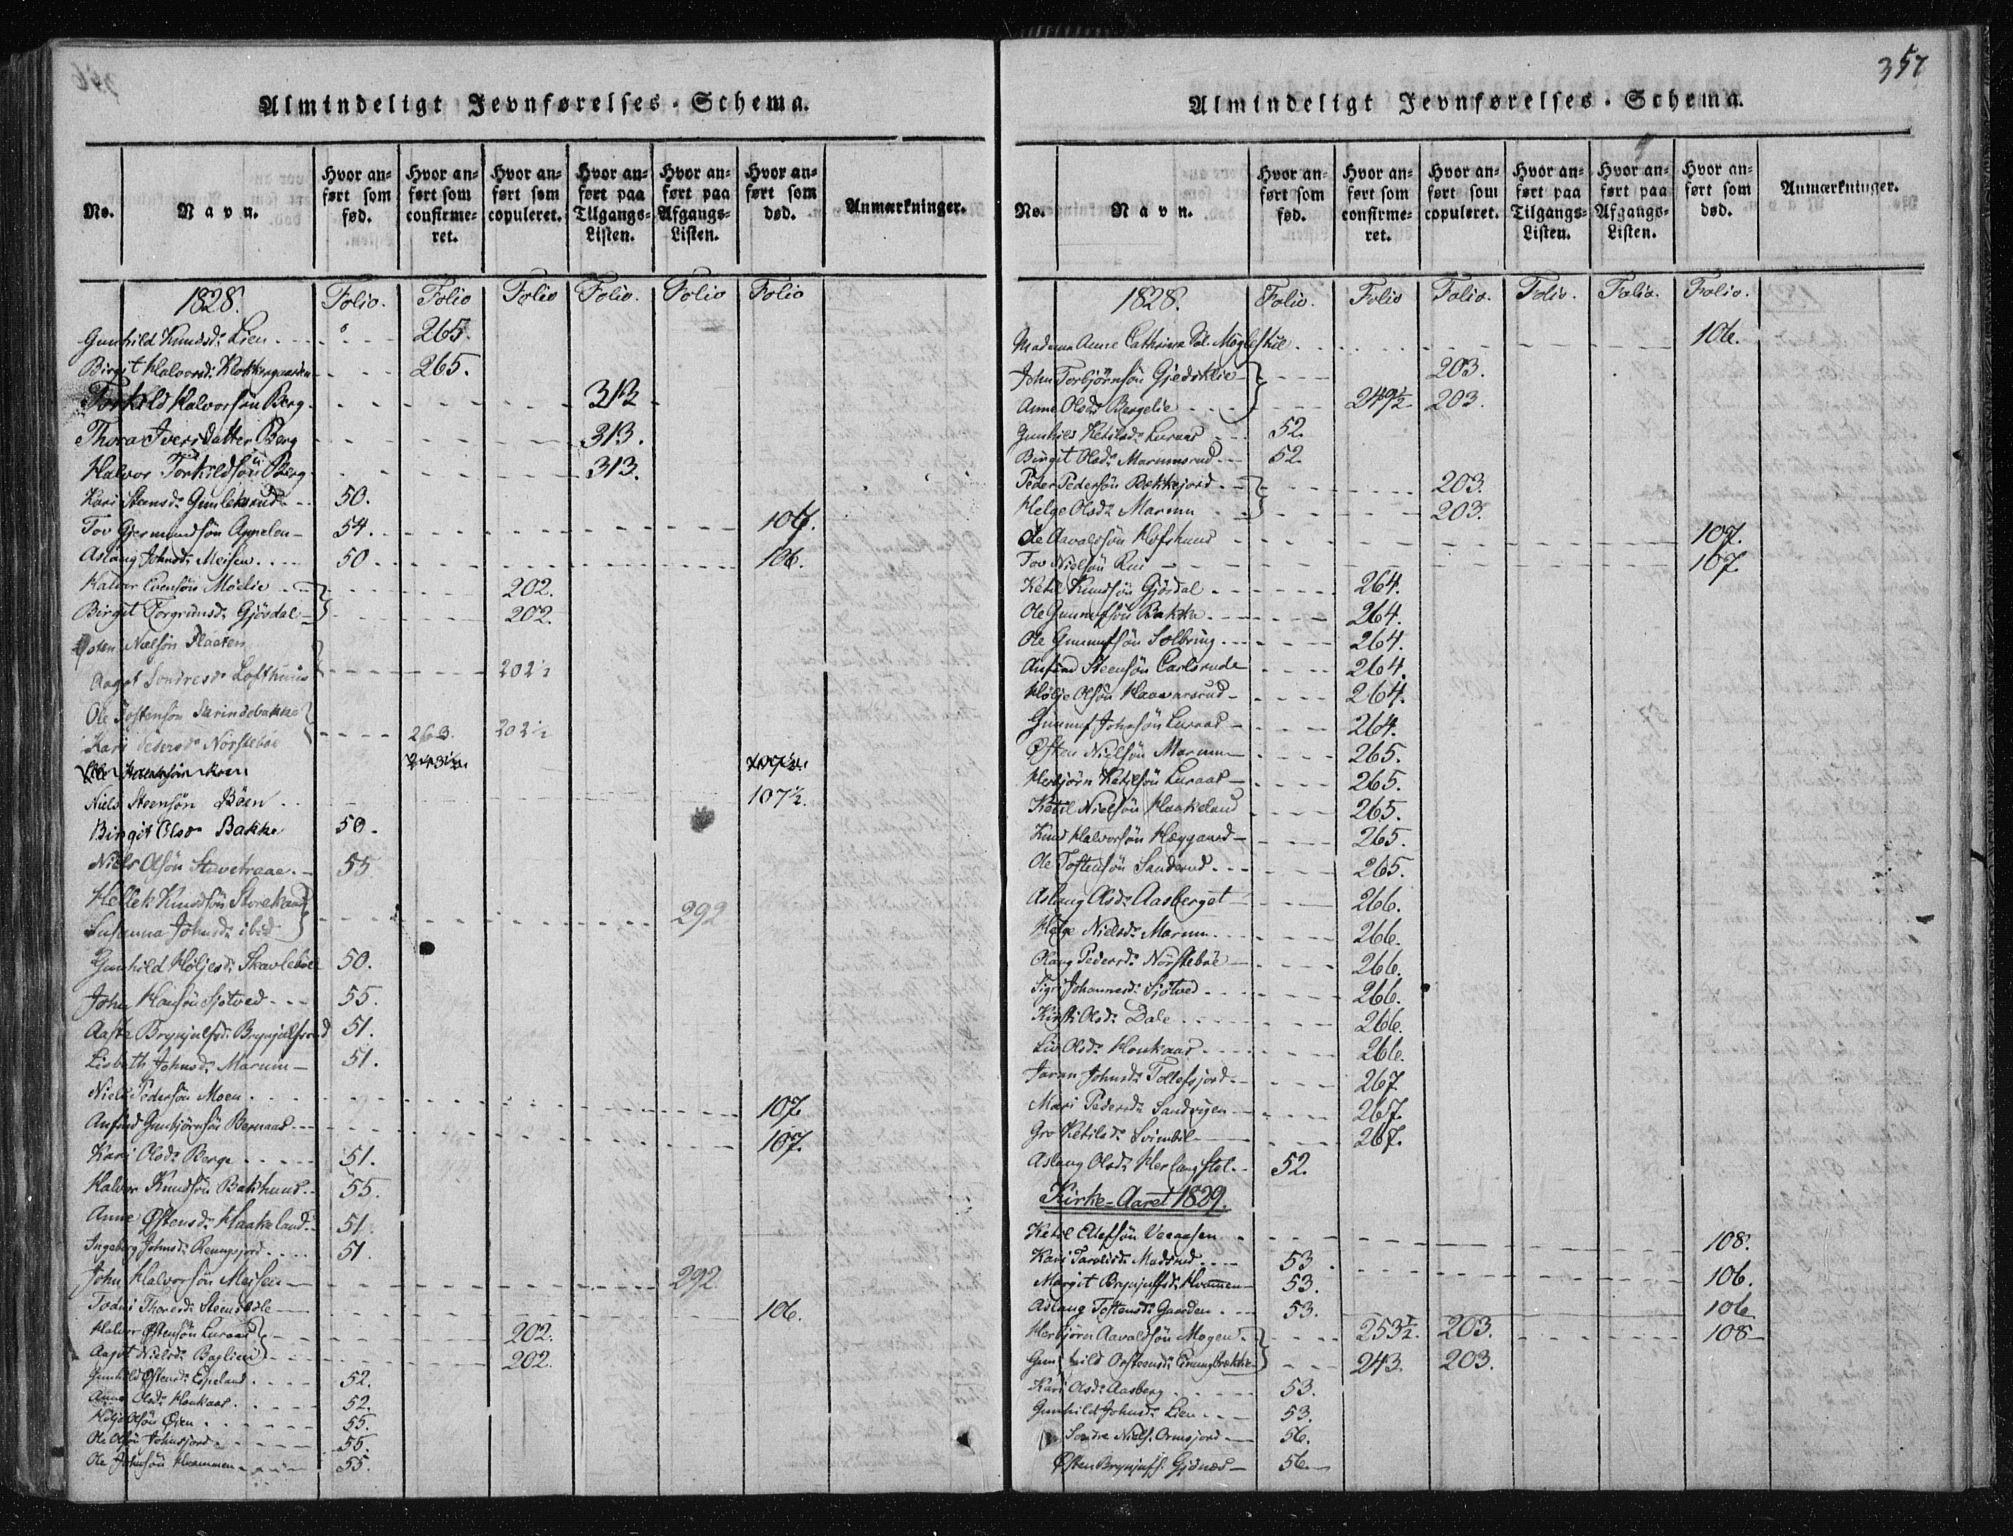 357
Almindeligt Jevnførelses-Schema.
No.
Navn.
Hvor anført som fød.
Hvor anført som confirmeret.
Hvor anført som copuleret.
Hvor anført paa Tilgangs-Listen.
Hvor anført paa Afgangs-Listen.
Hvor anført som død.
Anmærkninger.
1828. Folio. Folio Folio Folio. Folio Folio
Gunhild Knudsd: Lien 265.
Birgit Halvorsd: Klokkergaarden 265.
Torkild Halvorsön Berg 313
Thora Ivers Datter Berg 313.
Halvor Torkildsön Berg 313.
Kari Steensd: Gunleksrud 50.
Tov Gjermundsön 54. 106.
Aslaug Johnsd: Meisen 50 106.
Halvor Evensön Mølie 202.
Birgit Torgrimsd: Gjösdal 202.
Nielsön Plaaten
Aagot Sondresd: Lofthuus 202½
Ole Tostensön Strindebakke
Kari Pedersd: Nörstebøe 263. 202½
Niels Steensön Böen 107½.
Birgit Olsd: Bakke 50.
Niels Olsön Stuvetraae 55
Hellek Knudsön Storekaas
Susanna Johnsd: ibid 292
Gunhild Höljesd: Skavlebøe 50.
John Hansön Sjötved 55.
Aaste Brynjulfsd: Brynjulfsrud 51.
Lisbeth Johnsd: Marum 51.
Niels Pedersön Moen 107
Anfind Gunbjörnsön Bernaas 107.
Kari Olsd: Berge 51.
Halvor Knudsön Bakhuus 55.
Anne Östensd: Haakeland 51.
Ingeborg Johnsd: Rennysjord 51.
John Halvorsön Meisen 292.
Todni Thoresd: Steensdøle 106.
Halvor Östensön Luraas 202.
Aagot Nielsd: Baglien 202.
Gunhild Östensd: Espeland 52.
Anne Olsd: Honkaas 52.
Höljе Olsön Öien 55.
Ole Olsön Johnsjord 55.
Ole Johnsön Hvammen 55.
Almindeligt Jevnførelses-Schema.
No.
Navn.
Hvor anført som fød.
Hvor anført som confirmeret.
Hvor anført som copuleret.
Hvor anført paa Tilgangs-Listen.
Hvor anført paa Afgangs-Listen.
Hvor anført som død.
Anmærkninger.
1828. Folio. Folio Folio. Folio. Folio. Folio.
Madame Anne Cathrina Møglestue 106.
John Torbjörnsön Gjedsklie 203.
Anne Olsd: Bergelie 249½ 203.
Gunhild Ketilsd: Luraas 52.
Birgit Olsd: Marumsrud 52.
Peder Pedersön Bækkejord 203.
Helge Olsd: Marum 203.
Ole Aavaldsön Hofshuus 107.
Tov Nielsön Rui 107
Ketil Knudsön Gjösdal 264.
Ole Gunnufsön Bakke 264.
Ole Gunnufsön Solbring 264.
Anfind Steensön Carlsrude 264.
Hölje Olsön Haavarsrud 264.
Gunnuf Johnsön Luraas 264.
Östen Nielsön Marum 265.
Herbjörn Ketilsön Luraas 265.
Ketil Nielsön Haakeland 265.
Knud Halvorsön Hæggaard 265.
Ole Tostensön Sanderud 265.
Aslaug Olsd: Aasberget 266.
Helge Nielsd: Marum 266.
Olaug Pedersd: Nörstebøe 266.
Sigri Johannesd: Sjötved 266.
Kirsti Olsd: Dale 266.
Liv Olsd: Honkaas 266.
Jøran Johnsd: Tollefsjord 267
Mari Pedersd: Sandvigen 267.
Gro Ketilsd: Svimbil 267.
Aslaug Olsd: Herlaugstøl 52.
Kirke-Aaret 1829.
Ketil Ellefsön Veraasen 108.
Kari Taraldsd: Madsrud 53 106.
Margit Brynjulfsd: Hvammen 53. 106
Aslaug Tostensd: Gaarden 53. 108
Herbjörn Aavaldsön Mogen 253½. 203.
Gunhild Östensd: 243. 203.
Kari Olsd: Aasberg 53.
Gunhild Johnsd: Lien 53.
Sondre Niels. Ormsjord 56.
Östen Brynjulfs. Gjönæs 56